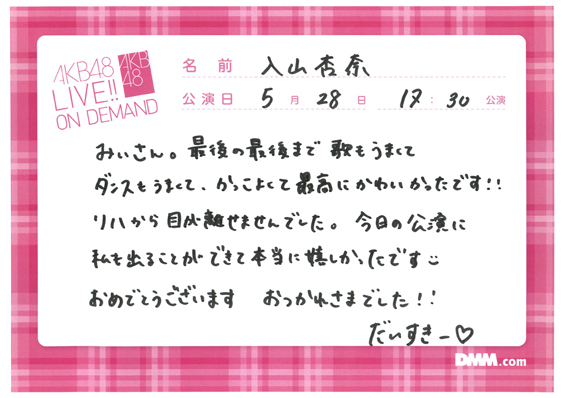 AKB48
LIVE!!
ON DEMAND
AKB
48
名前 入山杏奈
公演日 5月28日 17:30公演
みぃさん。最後の最後まで歌もうまくて
ダンスもうまくて、かっこよくて最高にかわいかったです!!
リハから目が離せませんでした。今日の公演に
私も出ることができて本当に嬉しかったです
おめでとうございます おつかれさまでした!!
だいすきー♡
DMM.com